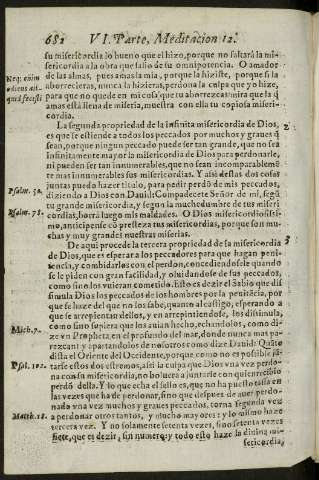 682 VI. Parte, Meditacion 12.
su misericordia lo bueno que el hizo, porque no faltarà la mi-
sericordia a la obra que salio de su omnipotencia. O amador
de las almas, pues amas la mia, porque la hiziste, porque si la
aborrecieras, nunca la hizieras, perdona la culpa que yo hize,
para que no quede en mi cosa que tu aborrezcas: mira que la q̃
amas està llena de miseria, muestra con ella tu copiosa miseri-
cordia.
Neq; enim
odiens ali-
quid fecisti
La segunda propriedad de la infinita misericordia de Dios,
es que se estiende a todos los peccados por muchos y graues q̃
sean, porque ningun peccado puede ser tan grande, que no sea
infinitamente mayor la misericordia de Dios para perdonarle,
ni pueden ser tan innumerables, que no sean incomparableme̅
te mas innumerables sus misericordias. Y assi destas dos cosas
juntas puedo hazer titulo, para pedir perdõ de mis peccados,
diziendo a Dios con Dauid: Compadecete Señor de mi, segũ
tu grande misericordia, y segun la muchedumbre de tus miseri
cordias, borra luego mis maldades. O Dios misericordiosissi-
mo, anticipense cõ presteza tus misericordias, porque son mu-
chas y muy grandes nuestras miserias.
2
Psalm. 50.
Psalm. 78.
De aqui procede la tercera propriedad de la misericordia
de Dios, que es esperar a los peccadores para que hagan peni-
tencia, y combidarlos con el perdon, concediendosele quando
se le piden con gran facilidad, y oluidandose de sus peccados,
como si no los vuieran cometido. Esto es dezir el Sabio que dis
simula Dios los peccados de los hombres por la penitēcia, por
que se haze del que no los sabe, quanto al castigo, esperando a
que se arrepientan dellos, y en arrepintiendose, los dissimula,
como sino supiera que los auian hecho, echandolos, como di-
ze vn Propheta, en el profundo del mar, donde nunca mas pa-
rezcan: y apartandolos de nosotros como dize Dauid: Quãto
dista el Oriente del Occidente, porque como no es possible jũ-
tarse estos dos estremos, assi la culpa que Dios vna vez perdo-
na con su misericordia, no boluera a juntarse con quien recibio
perdõ della. Y lo que echa el sello es, que no ha puesto tassa en
las vezes que ha de perdonar, sino que despues de auer perdo-
nado vna vez muchos y graues peccados, torna segunda vez
a perdonar otros tantos, y mucho mayores: y lo mismo haze
tercera vez. Y no solamente setenta vezes, sino setenta vezes
siete, que es dezir, sin numero: y todo esto haze la diuina mi-
3
Mich. 7.
Psal. 102.
Matth. 18.
sericordia,